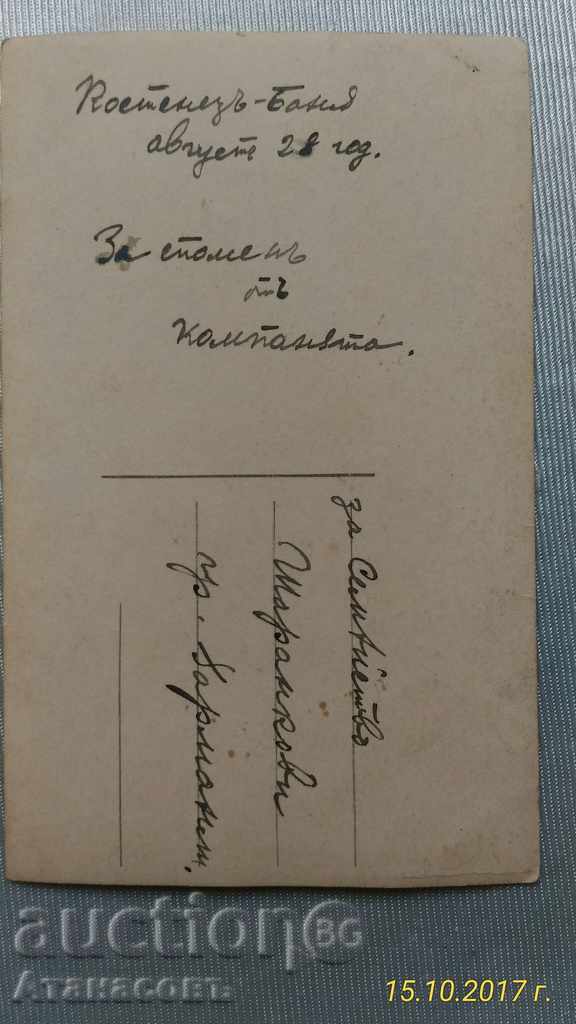 Костенецъ-Баня
августъ 28 год.
За споменъ
отъ
Компанята.
за Семѣйство
Шаранкови
гр. Харманли.
auction BG
Атанасовъ
15.10.2017 г.